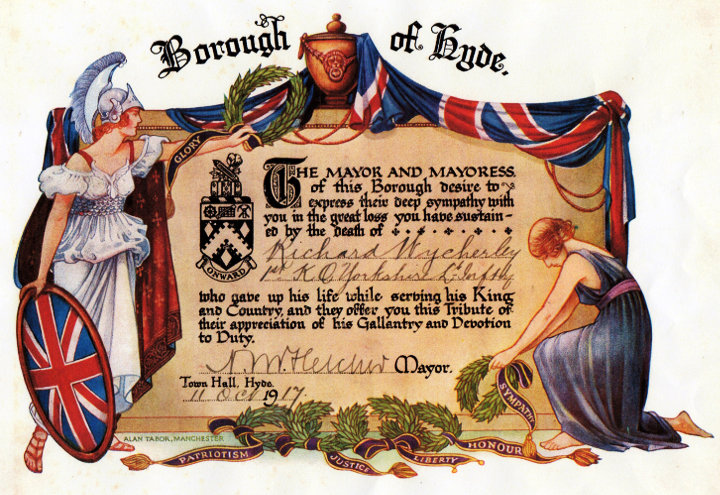 Borough of Hyde.
GLORY
THE MAYOR AND MAYORESS
of this Borough desire to
express their deep sympathy with
you in the great loss you have sustain-
ed by the death of
Richard Wycherley
1st K.O. Yorkshire Lt. Infty
who gave up his life while serving his King
and Country, and they offer you this Tribute of
their appreciation of his Gallantry and Devotion
to Duty.
Mayor.
Town Hall, Hyde.
11 Oct 1917.
ONWARD
SYMPATHY
ALAN TABOR, MANCHESTER
PATRIOTISM
JUSTICE
LIBERTY
HONOUR